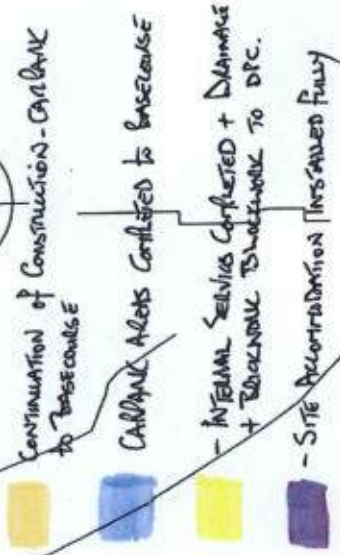 CONTINUATION of CONSTRUCTION - CARPARK
to BASECOURSE
CARPARK AREAS COMPLETED to BASECOURSE
- INTERNAL SERVICES COMPLETED + DRAINAGE
+ BRICKWORK BLOCKWORK TO DPC.
- SITE ACCOMMODATION INSTALLED FULLY